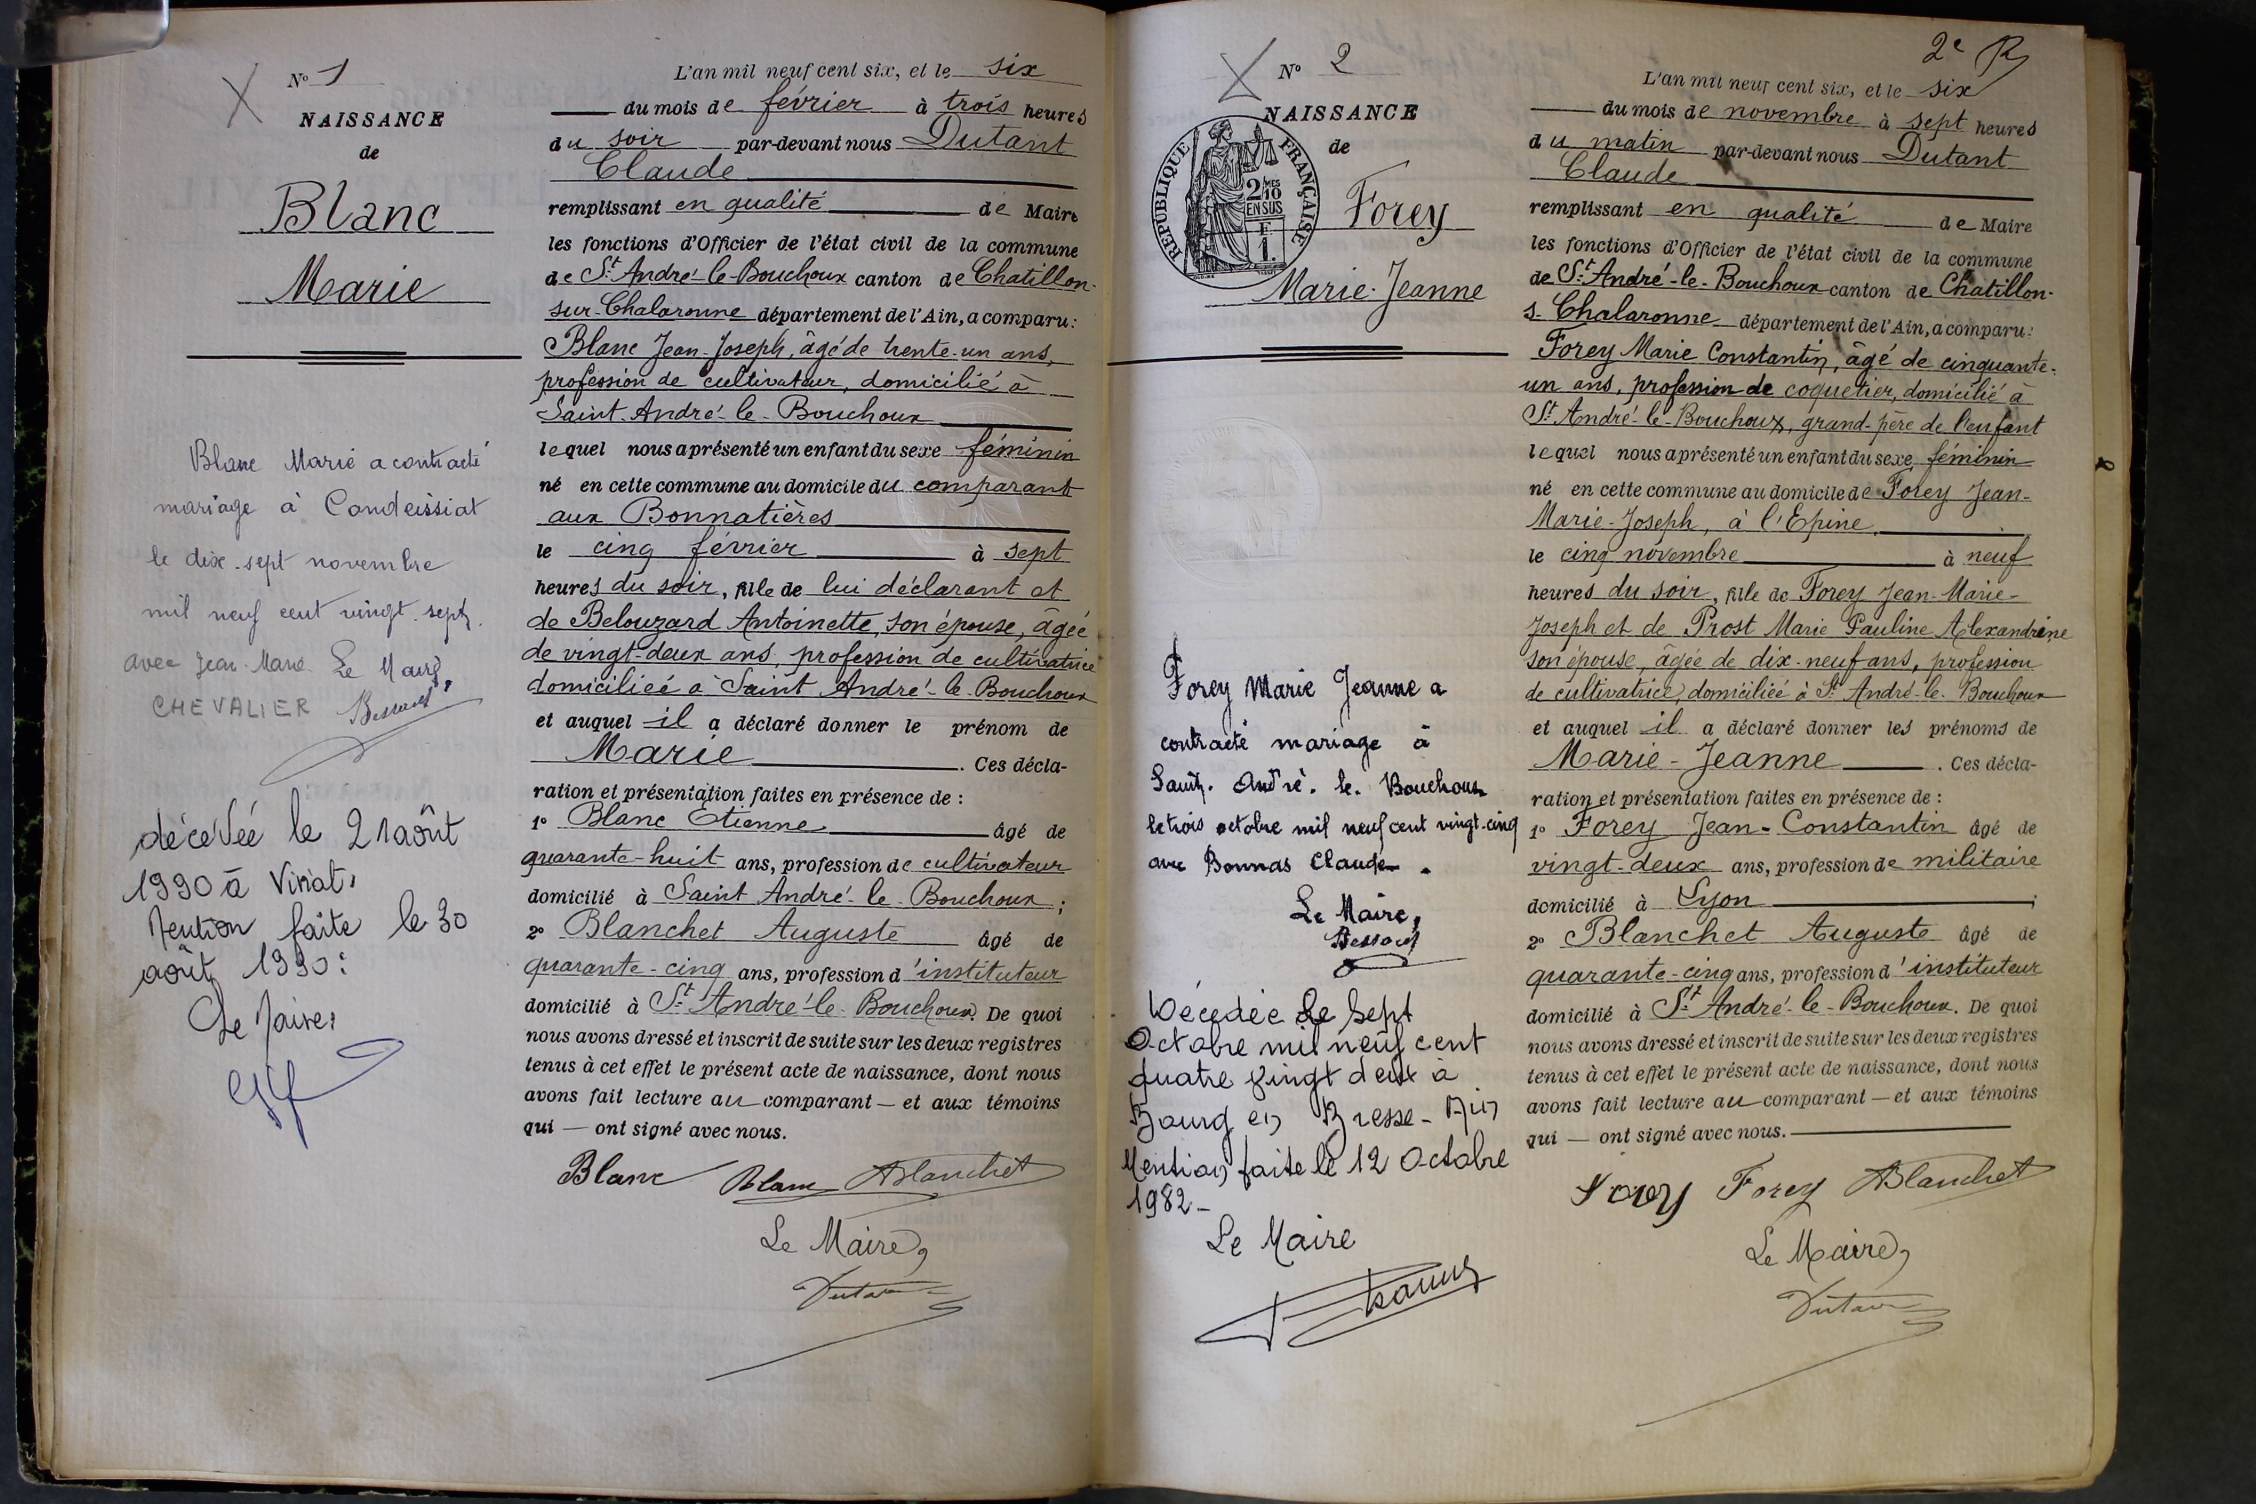 N° 1
NAISSANCE
de
Blanc
Marie
Blanc Marie a contracté
mariage à Condeissiat
le dix-sept novembre
mil neuf cent vingt-sept.
avec Jean-Marie Le Maire,
CHEVALIER
décédée le 21 août
1990 à Viriat.
Mention faite le 30
août 1990.
Le Maire,
L'an mil neuf cent six, et le six
du mois de février à trois heures
du soir par-devant nous Dutant
Claude
remplissant en qualité de Maire
les fonctions d'Officier de l'état civil de la commune
de St André-le-Bouchoux canton de Chatillon-
sur-Chalaronne département de l'Ain, a comparu :
Blanc Jean-Joseph, âgé de trente-un ans,
profession de cultivateur, domicilié à
Saint-André-le-Bouchoux
lequel nous a présenté un enfant du sexe féminin
né en cette commune au domicile du comparant
aux Bonnatières
le cinq février à sept
heures du soir, fille de lui déclarant et
de Belouzard Antoinette, son épouse, âgée
de vingt-deux ans, profession de cultivatrice
domiciliée à Saint André-le-Bouchoux
et auquel il a déclaré donner le prénom de
Marie . Ces décla-
ration et présentation faites en présence de :
1° Blanc Etienne âgé de
quarante-huit ans, profession de cultivateur
domicilié à Saint André-le-Bouchoux ;
2° Blanchet Auguste âgé de
quarante-cinq ans, profession d'instituteur
domicilié à St André-le-Bouchoux. De quoi
nous avons dressé et inscrit de suite sur les deux registres
tenus à cet effet le présent acte de naissance, dont nous
avons fait lecture au comparant — et aux témoins
qui — ont signé avec nous.
Blanc Blanc ABlanchet
Le Maire,
Dutant
2e R
N° 2
NAISSANCE
de
REPUBLIQUE FRANÇAISE
2/10 MES
EN SUS
F
1.
Forey
Marie-Jeanne
Forey Marie Jeanne a
contracté mariage à
Saint-André-le-Bouchoux
le trois octobre mil neuf cent vingt-cinq
avec Bonnas Claude.
Le Maire,
Décédée le Sept
Octobre mil neuf cent
quatre vingt deux à
Bourg en Bresse - Ain
Mention faite le 12 Octobre
1982-
Le Maire
L'an mil neuf cent six, et le six
du mois de novembre à sept heures
du matin par-devant nous Dutant
Claude
remplissant en qualité de Maire
les fonctions d'Officier de l'état civil de la commune
de St André-le-Bouchoux canton de Chatillon-
s-Chalaronne département de l'Ain, a comparu :
Forey Marie Constantin, âgé de cinquante-
un ans, profession de coquetier, domicilié à
St André-le-Bouchoux, grand-père de l'enfant
lequel nous a présenté un enfant du sexe féminin
né en cette commune au domicile de Forey Jean-
Marie-Joseph, à l'Epine.
le cinq novembre à neuf
heures du soir, fille de Forey Jean-Marie-
Joseph et de Prost Marie Pauline Alexandrine
son épouse, âgée de dix-neuf ans, profession
de cultivatrice, domiciliée à St André-le-Bouchoux
et auquel il a déclaré donner les prénoms de
Marie-Jeanne . Ces décla-
ration et présentation faites en présence de :
1° Forey Jean-Constantin âgé de
vingt-deux ans, profession de militaire
domicilié à Lyon ;
2° Blanchet Auguste âgé de
quarante-cinq ans, profession d'instituteur
domicilié à St André-le-Bouchoux. De quoi
nous avons dressé et inscrit de suite sur les deux registres
tenus à cet effet le présent acte de naissance, dont nous
avons fait lecture au comparant — et aux témoins
qui — ont signé avec nous.
Forey Forey ABlanchet
Le Maire,
Dutant